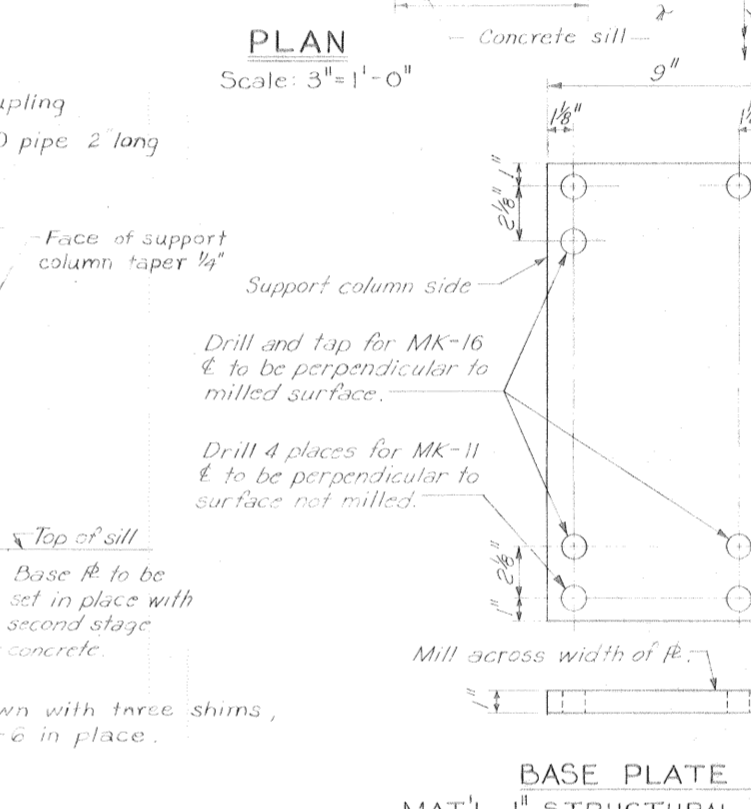 PLAN
Scale: 3"=1'-0"
Concrete sill
9"
1⅛"
upling
pipe 2" long
1"
2⅛"
Face of support
column taper ¼"
Support column side
Drill and tap for MK-16
℄ to be perpendicular to
milled surface.
Drill 4 places for MK-11
℄ to be perpendicular to
surface not milled.
Top of sill
Base ⅊ to be
set in place with
second stage
concrete.
2⅛"
1"
Mill across width of ⅊.
wn with three shims,
-6 in place.
1"
BASE PLATE
MAT'L 1" STRUCTURAL